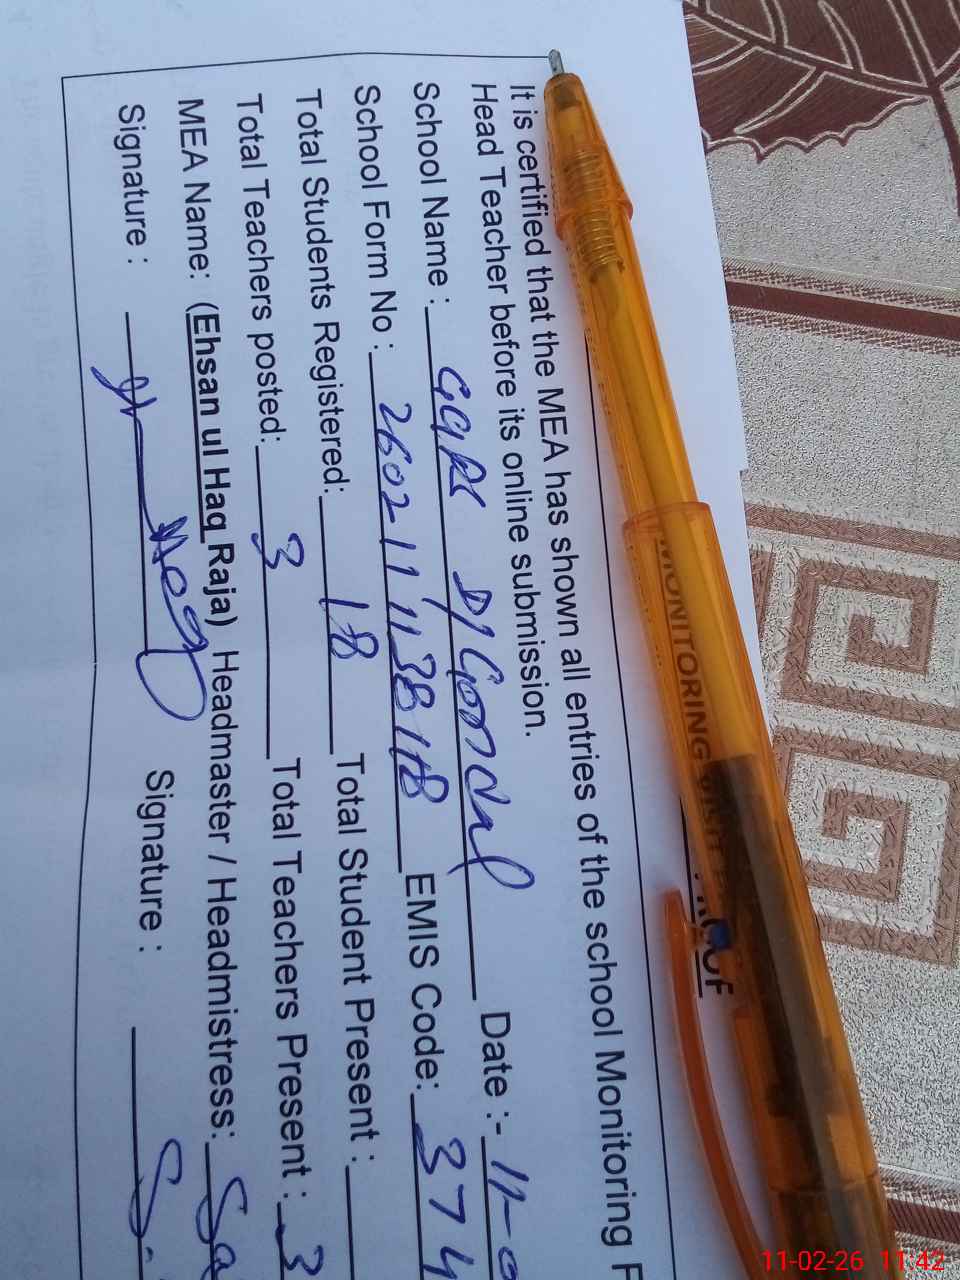 MONITORING VISIT PROOF
It is certified that the MEA has shown all entries of the school Monitoring F
Head Teacher before its online submission.
School Name : GGPS Date :- 11-0
School Form No : 2602-11 11 38 118 EMIS Code: 374
Total Students Registered: 18 Total Student Present :
Total Teachers posted: 3 Total Teachers Present : 3
MEA Name: (Ehsan ul Haq Raja) Headmaster / Headmistress: Sa
Signature : Signature :
11-02-26 11:42